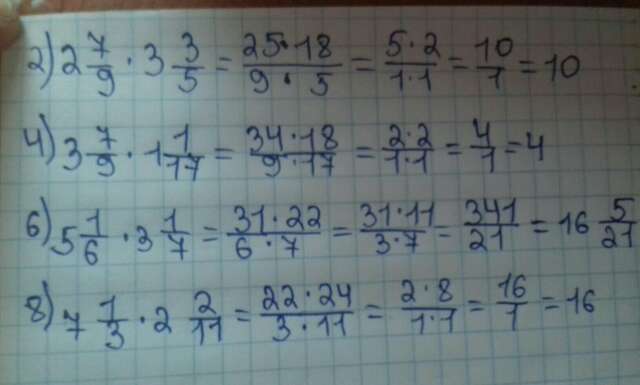 2) 2 7/9 · 3 3/5 = 25·18/9·5 = 5·2/1·1 = 10/1 = 10
4) 3 7/9 · 1 1/17 = 34·18/9·17 = 2·2/1·1 = 4/1 = 4
6) 5 1/6 · 3 1/7 = 31·22/6·7 = 31·11/3·7 = 341/21 = 16 5/21
8) 7 1/3 · 2 2/11 = 22·24/3·11 = 2·8/1·1 = 16/1 = 16